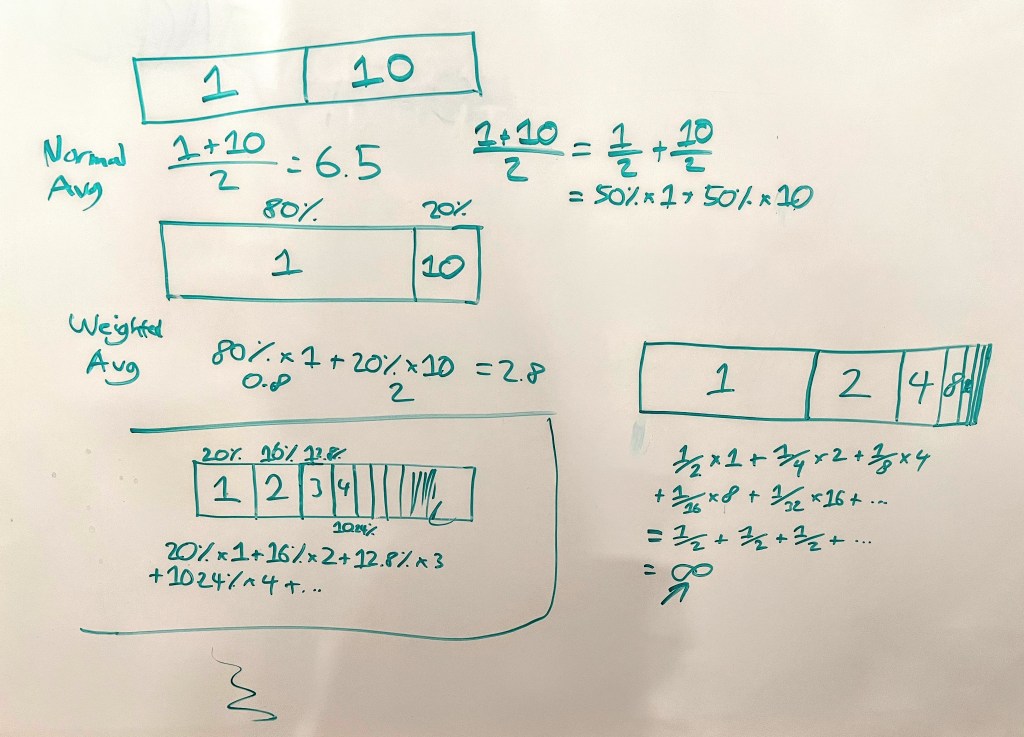 1 10
Normal Avg
1+10/2 = 6.5
1+10/2 = 1/2 + 10/2
= 50% × 1 + 50% × 10
80% 20%
1 10
Weighted Avg
80% × 1 + 20% × 10 = 2.8
0.8 2
20% 16% 12.8%
1 2 3 4
10.24%
20% × 1 + 16% × 2 + 12.8% × 3
+ 10.24% × 4 + ...
1 2 4 8
1/2 × 1 + 1/4 × 2 + 1/8 × 4
+ 1/16 × 8 + 1/32 × 16 + ...
= 1/2 + 1/2 + 1/2 + ...
= ∞